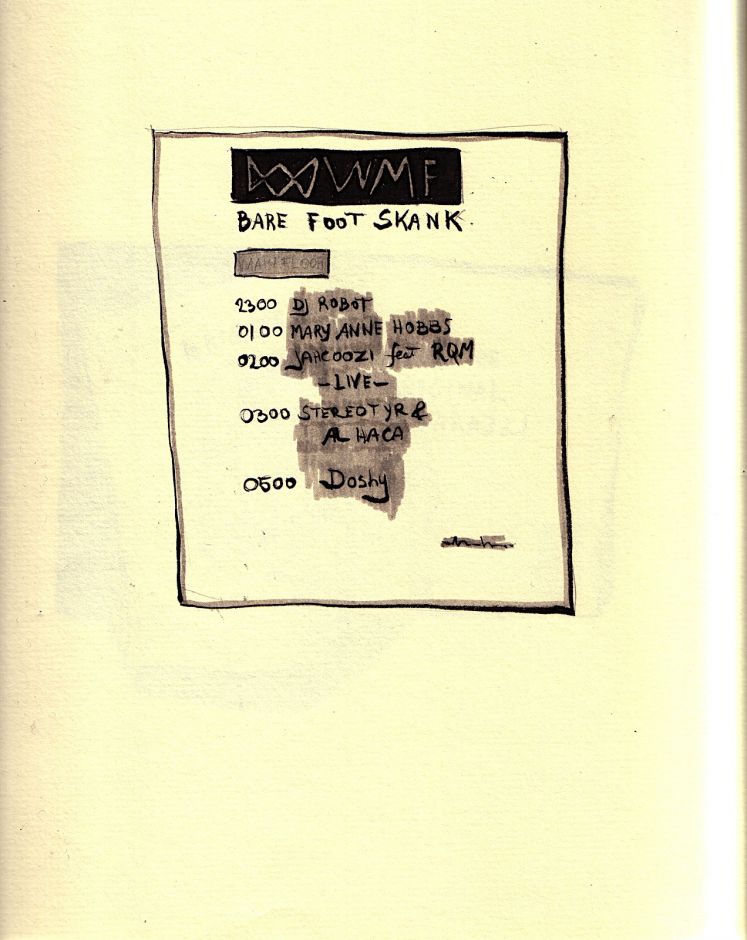 WMF
BARE FOOT SKANK.
MAIN FLOOR
2300 DJ ROBOT
0100 MARY ANNE HOBBS
0200 JAHCOOZI feat RQM
-LIVE-
0300 STEREOTYR &
AL HACA
0500 Doshy